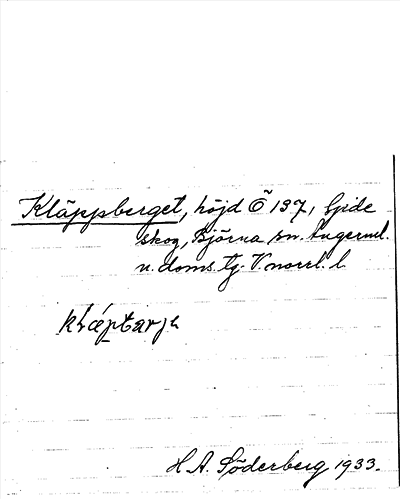 Kläppberget, höjd Ö 197, Gide
skog, Björna sn. Ångerml.
n. doms. tg. V. norrl. l.
H. A. Söderberg 1933.